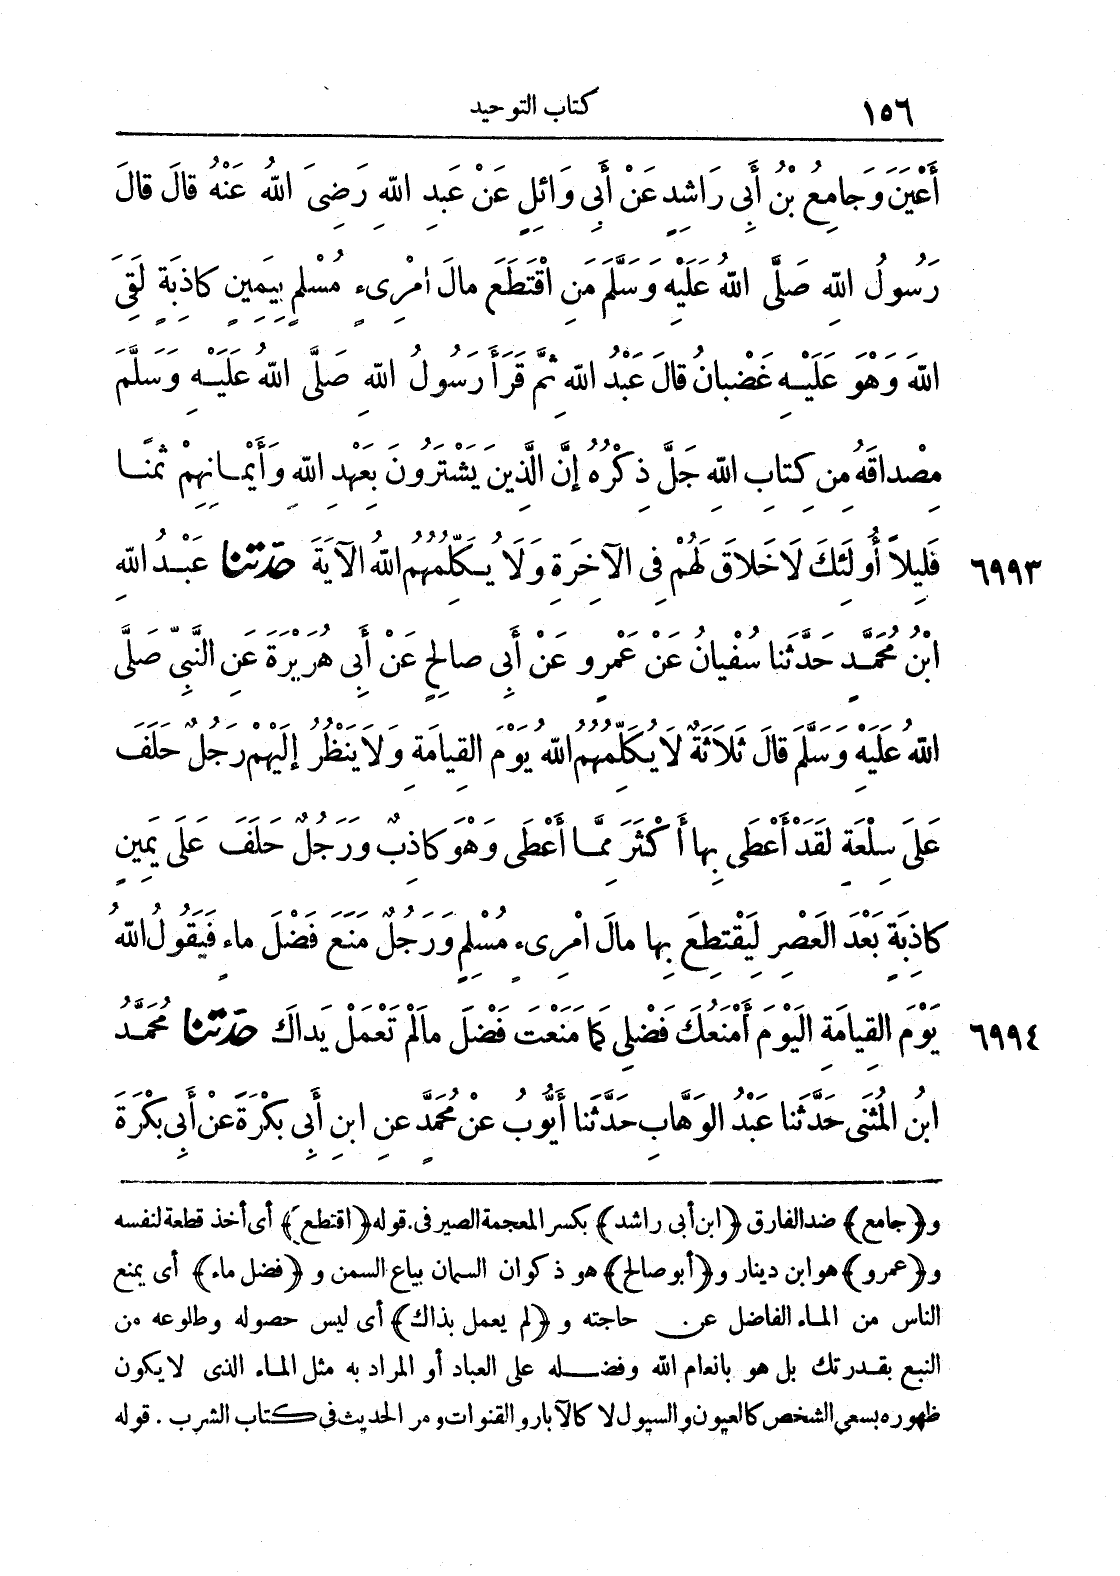 ١٥٦ كتاب التوحيد
أَعْيَنَ وَجَامِعُ بْنُ أَبِى رَاشِدٍ عَنْ أَبِى وَائِلٍ عَنْ عَبدِ اللهِ رَضِىَ اللهُ عَنْهُ قالَ قالَ
رَسُولُ اللهِ صَلَّى اللهُ عَلَيْهِ وَسَلَّمَ مَنِ اقْتَطَعَ مالَ امْرِىءٍ مُسْلِمٍ بِيَمِينٍ كاذِبَةٍ لَقِىَ
اللهَ وَهْوَ عَلَيْهِ غَضْبانُ قالَ عَبْدُ اللهِ ثُمَّ قَرَأَ رَسُولُ اللهِ صَلَّى اللهُ عَلَيْهِ وَسَلَّمَ
مِصْداقَهُ مِن كِتابِ اللهِ جَلَّ ذِكْرُهُ إِنَّ الَّذِينَ يَشْتَرُونَ بِعَهْدِ اللهِ وَأَيْمانِهِمْ ثَمَنًا
قَلِيلاً أُولَئِكَ لاَ خَلاقَ لَهُمْ فِى الآخِرَةِ وَلاَ يُكَلِّمُهُم اللهُ الآيَةَ حَدَّثَنا عَبْدُ اللهِ ٦٩٩٣
ابْنُ مُحَمَّدٍ حَدَّثَنا سُفْيانُ عَنْ عَمْرٍو عَنْ أَبِى صالِحٍ عَن أَبِى هُرَيْرَةَ عَنِ النَّبِىِّ صَلَّى
اللهُ عَلَيْهِ وَسَلَّمَ قالَ ثَلاَثَةٌ لاَ يُكَلِّمُهُم اللهُ يَوْمَ القِيامَةِ وَلاَ يَنْظُرُ إِلَيْهِمْ رَجُلٌ حَلَفَ
عَلَى سِلْعَةٍ لَقَدْ أَعْطَى بِها أَكْثَرَ مِمَّا أَعْطَى وَهْوَ كاذِبٌ وَرَجُلٌ حَلَفَ عَلَى يَمِينٍ
كاذِبَةٍ بَعْدَ العَصْرِ لِيَقْتَطِعَ بِها مالَ امْرِىءٍ مُسْلِمٍ وَرَجُلٌ مَنَعَ فَضْلَ ماءٍ فَيَقُولُ اللهُ
يَوْمَ القِيامَةِ الْيَوْمَ أَمْنَعُكَ فَضْلِى كَمَا مَنَعْتَ فَضْلَ مالَمْ تَعْمَلْ يَداكَ حَدَّثَنا مُحَمَّدُ ٦٩٩٤
ابنُ المُثَنى حَدَّثَنا عَبْدُ الوَهَّابِ حَدَّثَنا أَيُّوبُ عَنْ مُحَمَّدٍ عنِ ابنِ أَبِى بكْرَةَ عَنْ أَبِى بَكْرَةَ
و﴿جامع﴾ ضد الفارق ﴿ابن أبى راشد﴾ بكسر المعجمة الصيرفى. قوله ﴿اقتطع﴾ أى أخذ قطعة لنفسه
و﴿عمرو﴾ هو ابن دينار و﴿أبو صالح﴾ هو ذكوان السمان بياع السمن و﴿فضل ماء﴾ أى يمنع
الناس من الماء الفاضل عن حاجته و﴿لم يعمل بذاك﴾ أى ليس حصوله وطلوعه من
النبع بقدرتك بل هو بانعام الله وفضله على العباد أو المراد به مثل الماء الذى لا يكون
ظهوره بسعى الشخص كالعيون والسيول لا كالآبار والقنوات ومر الحديث فى كتاب الشرب. قوله